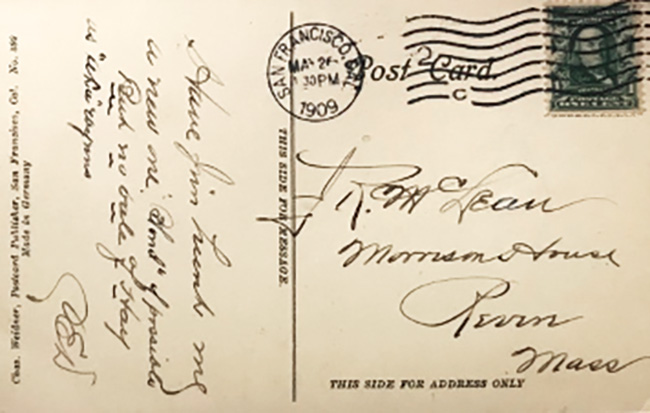 Chas. Weidner, Postcard Publisher, San Francisco, Cal. No. 392
Made in Germany
Have Jim send me
a new one. Send if possible
But no bale of Hay
THIS SIDE FOR MESSAGE.
SAN FRANCISCO, CAL.
MAY 2
30 PM
1909
2
C
Post Card.
R. McLean
Morrison House
Revin
Mass
THIS SIDE FOR ADDRESS ONLY